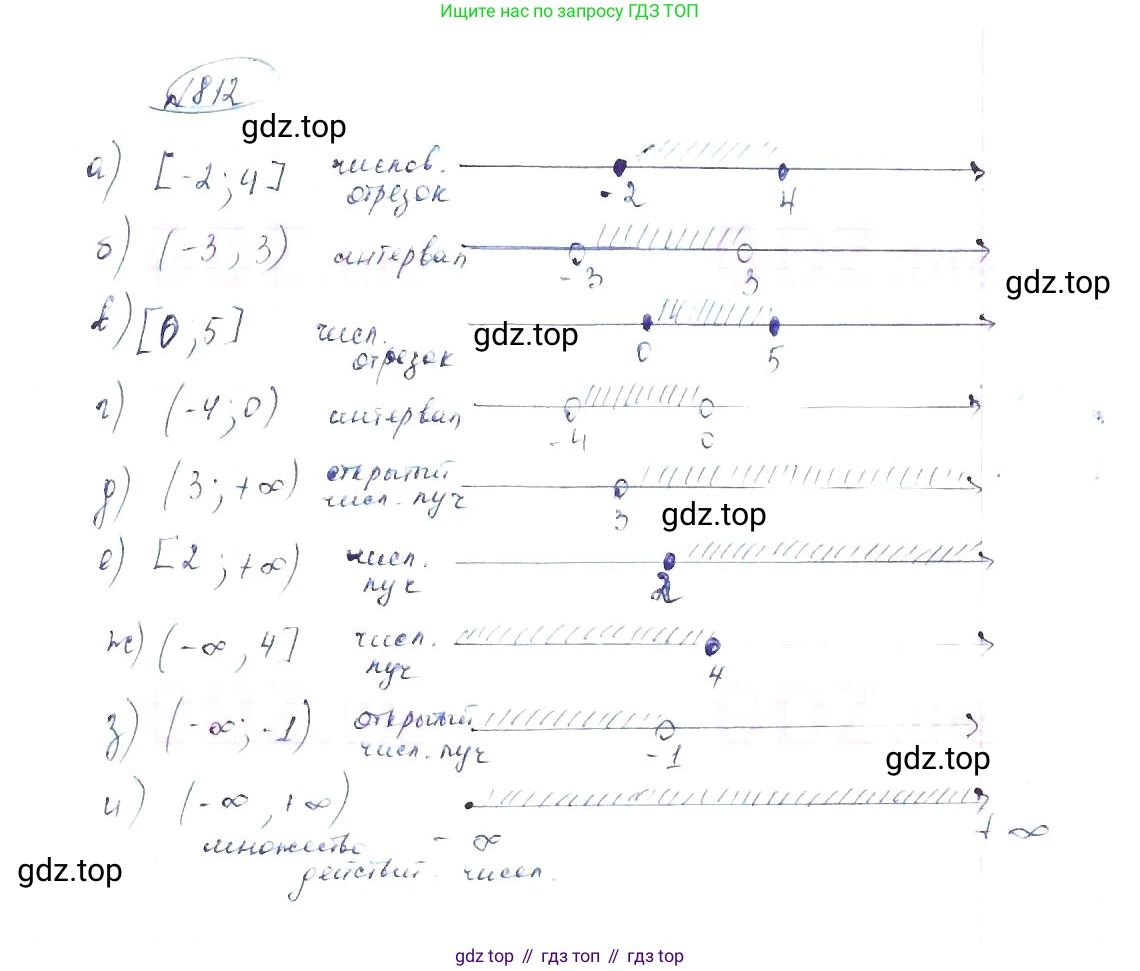 Ищите нас по запросу ГДЗ ТОП
№812
gdz.top
а) [-2; 4] числов. отрезок -2 4
б) (-3; 3) интервал -3 3
gdz.top
в) [0; 5] числ. отрезок gdz.top 0 5
г) (-4; 0) интервал -4 0
д) (3; +∞) открытый числ. луч 3
gdz.top
е) [2; +∞) числ. луч 2
ж) (-∞, 4] числ. луч 4
з) (-∞; -1) открытый числ. луч -1
gdz.top
и) (-∞, +∞) -∞ +∞
множество
действит. чисел.
gdz.top
gdz top // гдз топ // gdz top